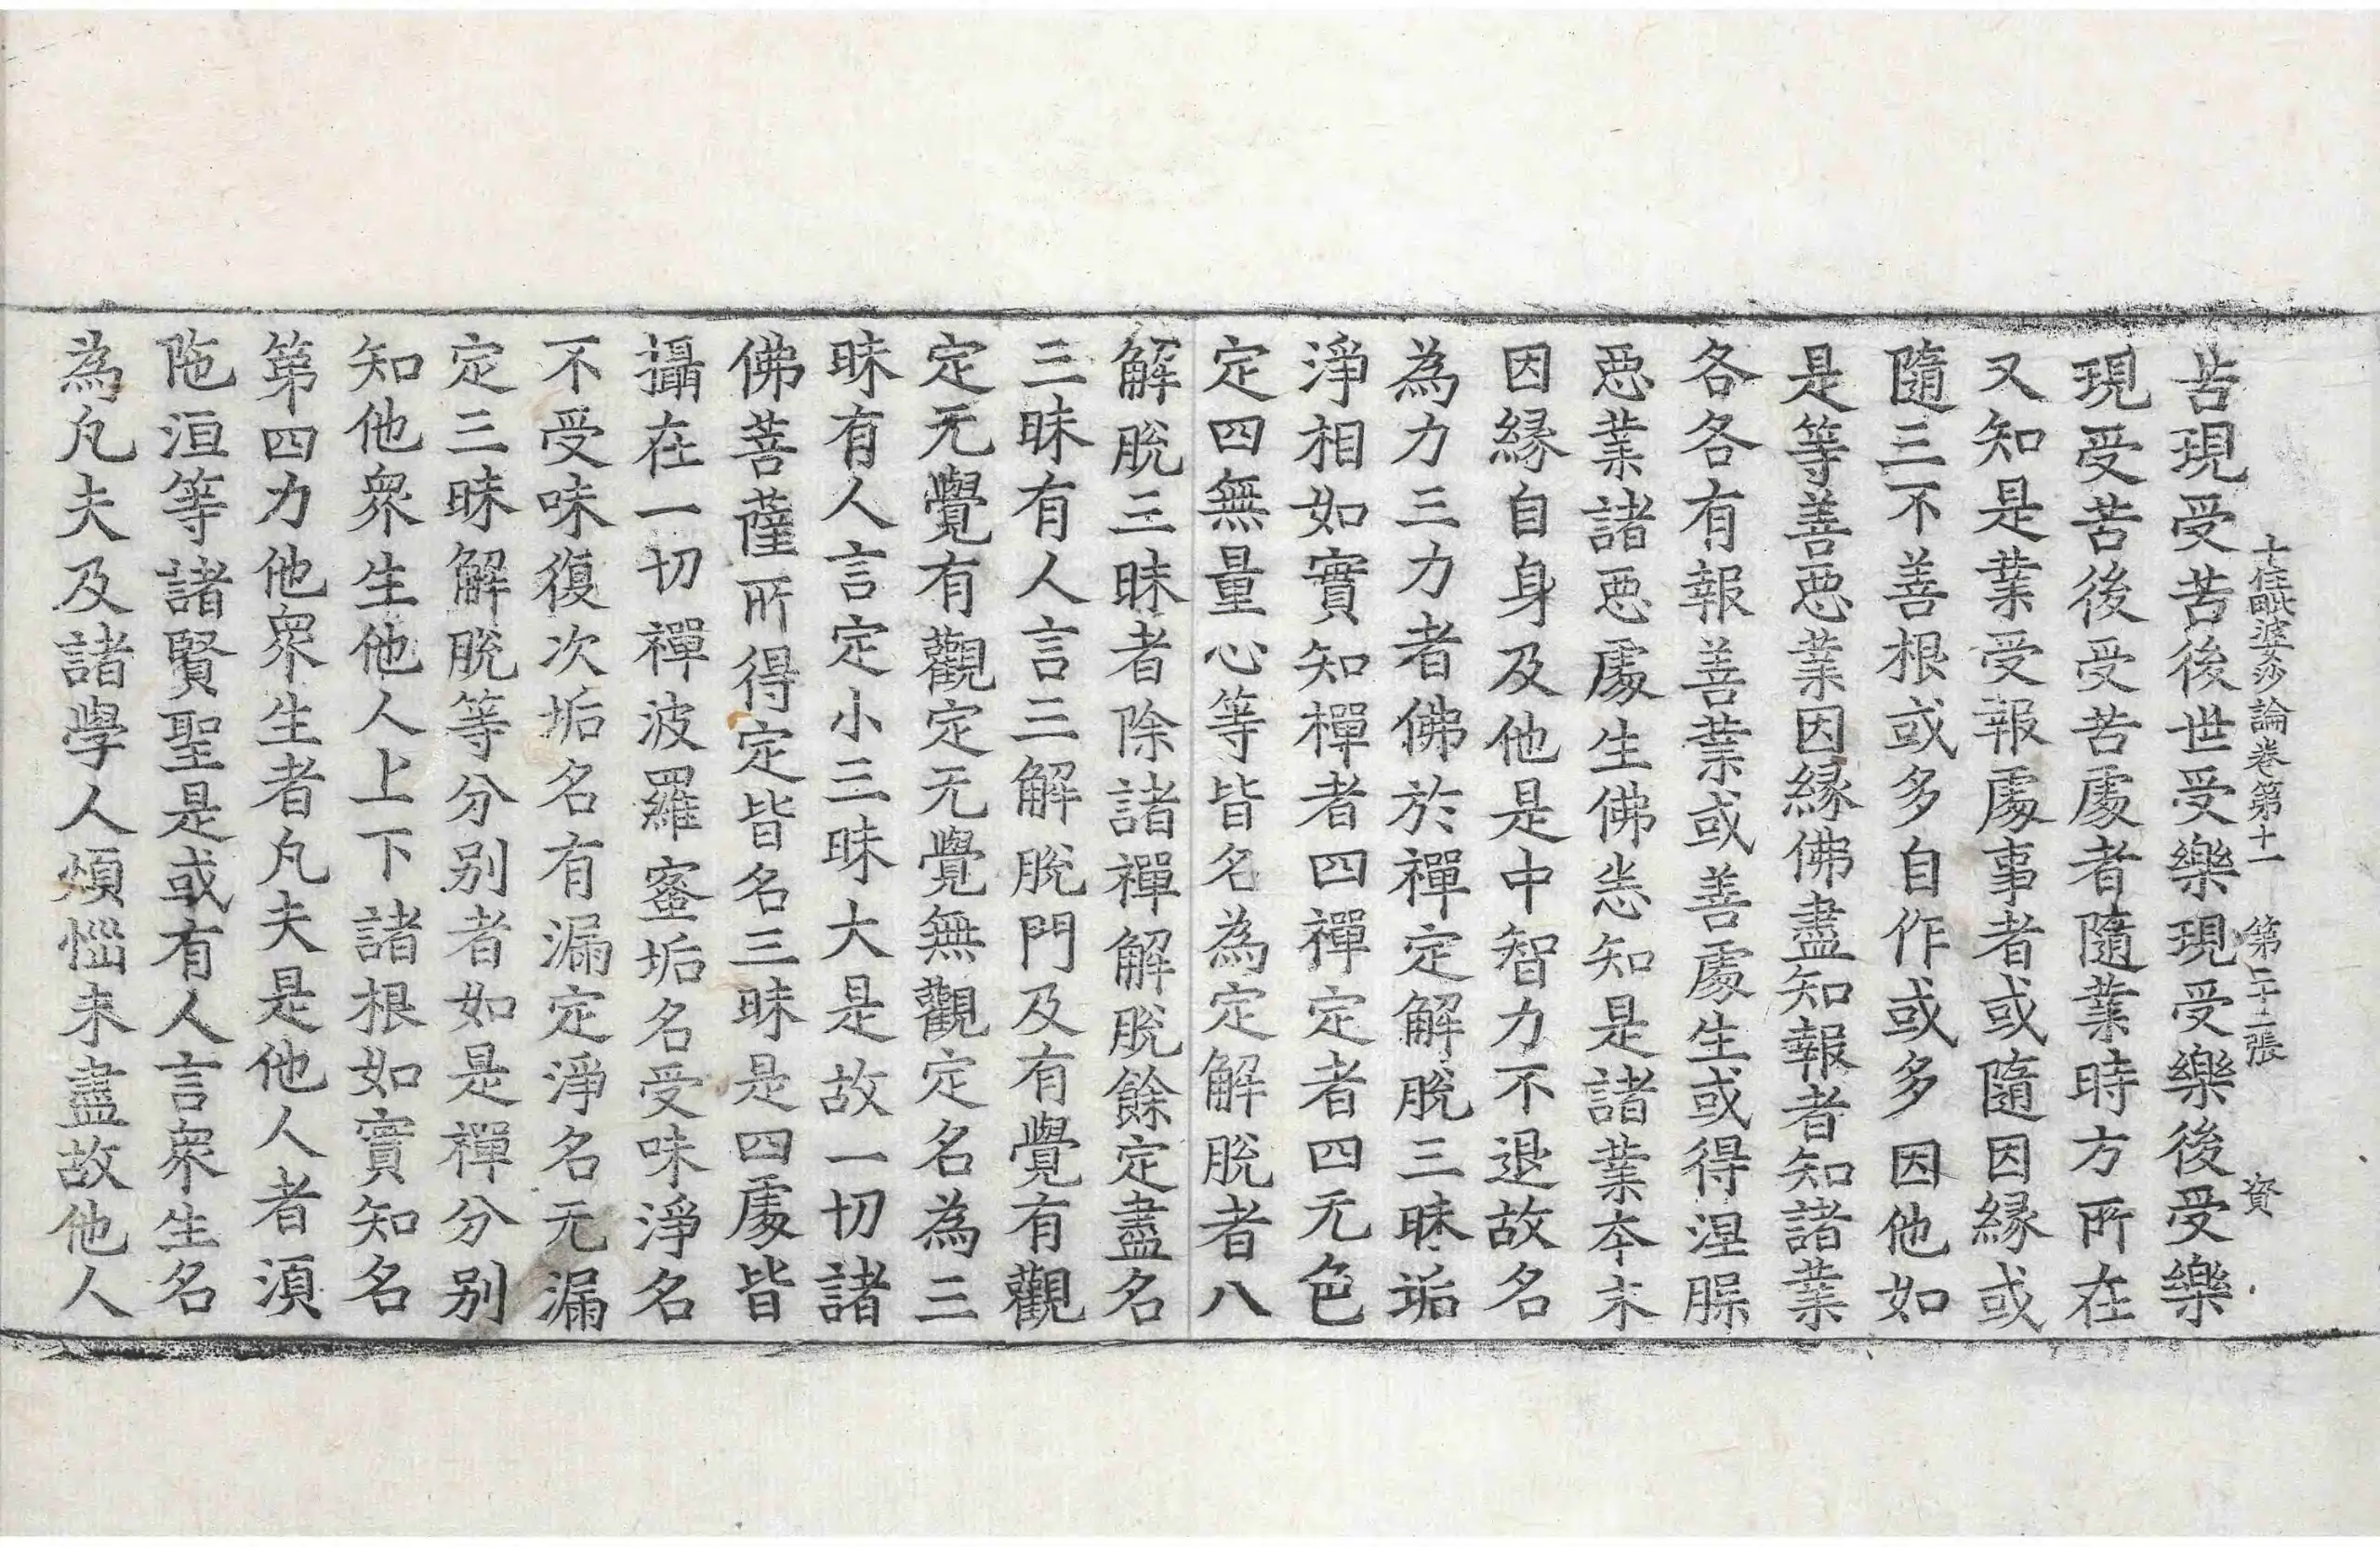 十住毗婆沙論卷第十一　第二十二張　資
苦現受苦後世受樂現受樂後受樂
現受苦後受苦處者隨業時方所在
又知是業受報處事者或隨因緣或
隨三不善根或多自作或多因他如
是等善惡業因緣佛盡知報者知諸業
各各有報善業或善處生或得涅槃
惡業諸惡處生佛悉知是諸業本末
因緣自身及他是中智力不退故名
為力三力者佛於禪定解脫三昧垢
淨相如實知禪者四禪定者四无色
定四無量心等皆名為定解脫者八
解脫三昧者除諸禪解脫餘定盡名
三昧有人言三解脫門及有覺有觀
定无覺有觀定无覺無觀定名為三
昧有人言定小三昧大是故一切諸
佛菩薩所得定皆名三昧是四處皆
攝在一切禪波羅蜜垢名受味淨名
不受味復次垢名有漏定淨名无漏
定三昧解脫等分別者如是禪分別
知他眾生他人上下諸根如實知名
第四力他眾生者凡夫是他人者須
陁洹等諸賢聖是或有人言眾生名
為凡夫及諸學人煩惱未盡故他人